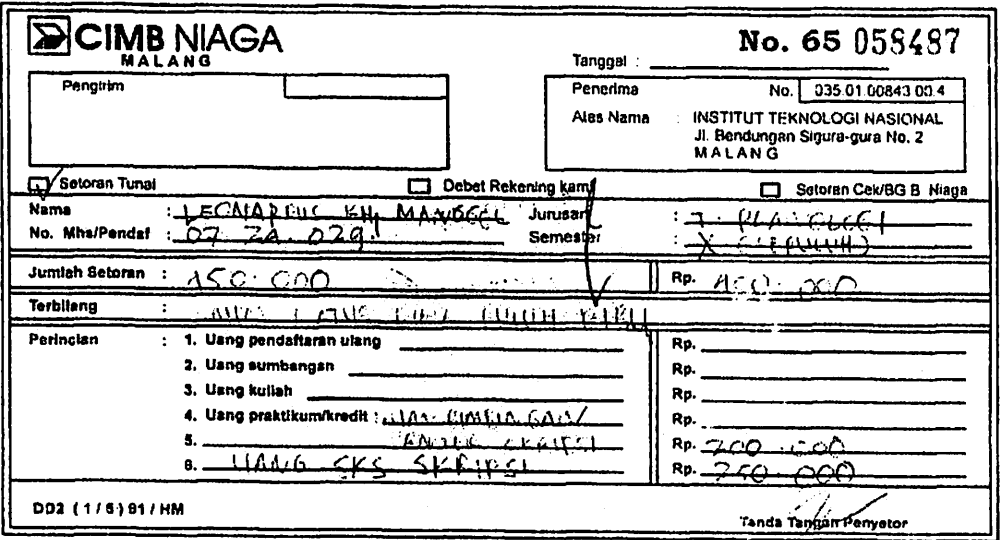 CIMB NIAGA
MALANG
No. 65 058487
Tanggal :
Pengirim
Penerima No. 035.01.00843.00.4
Atas Nama : INSTITUT TEKNOLOGI NASIONAL
Jl. Bendungan Sigura-gura No. 2
MALANG
Setoran Tunai
Debet Rekening kami
Setoran Cek/BG B Niaga
Nama :
Jurusan :
No. Mhs/Pendaf : 07 24 029
Semester : X
Jumlah Setoran : 450.000
Rp. 450.000
Terbilang :
Perincian : 1. Uang pendaftaran ulang
Rp.
2. Uang sumbangan
Rp.
3. Uang kuliah
Rp.
4. Uang praktikum/kredit :
Rp.
5. SKRIPSI
Rp. 200.000
6. UANG SKS SKRIPSI
Rp. 250.000
DD2 (1/6) 91 / HM
Tanda Tangan Penyetor